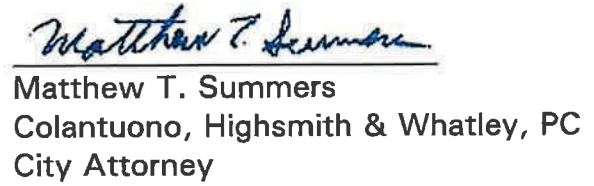 Matthew T. Summers
Matthew T. Summers
Colantuono, Highsmith & Whatley, PC
City Attorney